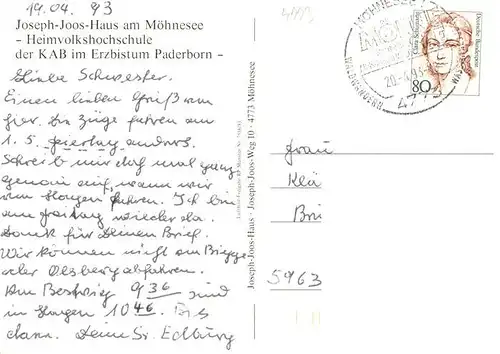 19.04. 93
Joseph-Joos-Haus am Möhnesee
- Heimvolkshochschule
der KAB im Erzbistum Paderborn -
Liebe Schwester.
Einen lieben Gruß von
hier. Die Züge fahren am
1. 5. Feiertag anders.
Schreib mir doch mal ganz
genau auf, wann wir
von Hagen fahren. Ich bin
am Freitag wieder da.
Dank für Deinen Brief.
Wir können nicht am Bigge
oder Olsberg abfahren.
Am Bestwig 9 36 sind
in Hagen 10 46. Bis
dann. Deine Sr. Edburg
Joseph-Joos-Haus · Joseph-Joos-Weg 10 · 4773 Möhnesee
4773
MÖHNESEE
MÖHNESEE
20.-4.93
WALD WANDERN WA
4773
Clara Schumann
Deutsche Bundespost
80
Frau
Klä
Bri
5963